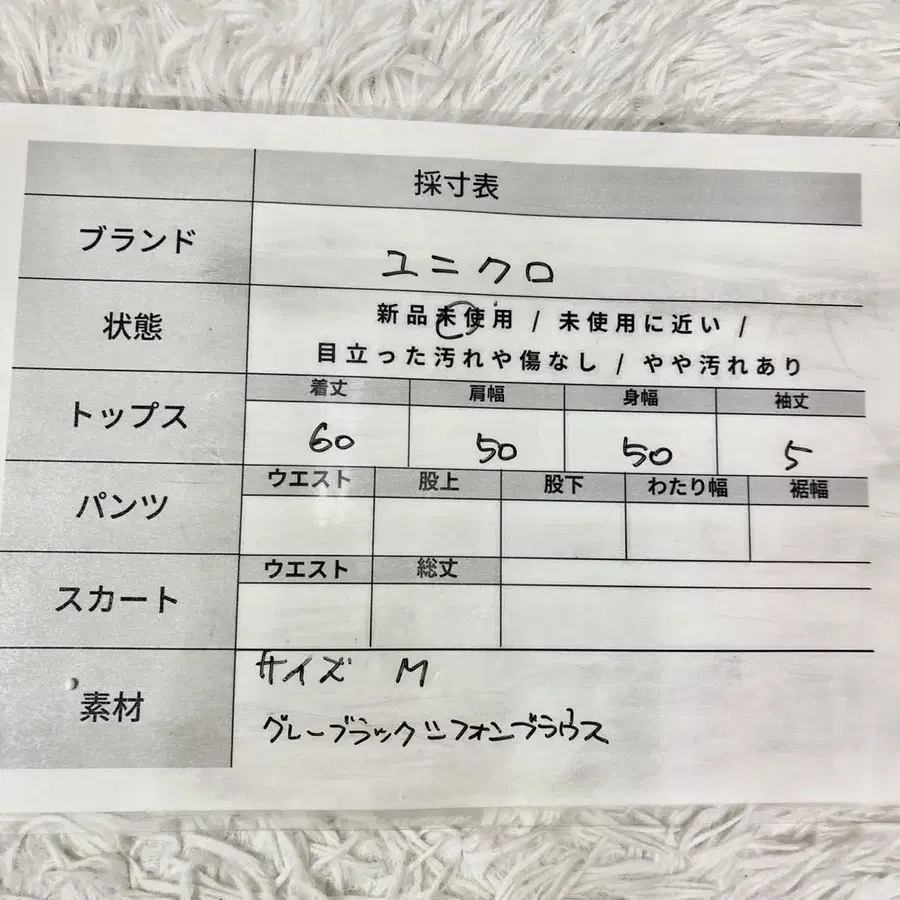 採寸表
ブランド
ユニクロ
状態
新品未使用 / 未使用に近い /
目立った汚れや傷なし / やや汚れあり
トップス
着丈 肩幅 身幅 袖丈
60 50 50 5
パンツ
ウエスト 股上 股下 わたり幅 裾幅
スカート
ウエスト 総丈
素材
サイズ M
グレーブラックシフォンブラウス